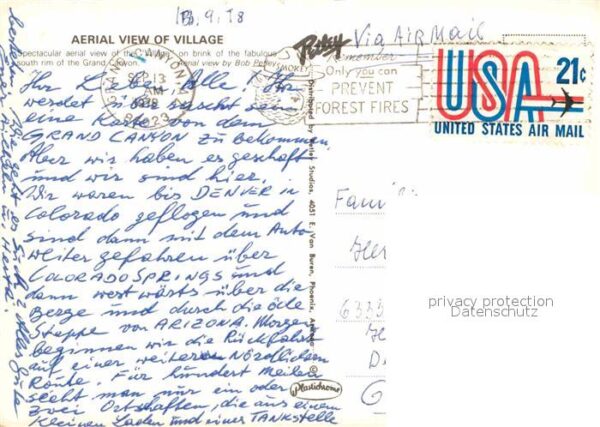 13.9.78
AERIAL VIEW OF VILLAGE
Spectacular aerial view of the "Village" on brink of the fabulous
south rim of the Grand Canyon. Aerial view by Bob Petley
Petley
Via Air Mail
GRAND CANYON
SEP 13
AM
1978
86023
SMOKEY
Remember
Only you can
PREVENT
FOREST FIRES
USA 21c
UNITED STATES AIR MAIL
Ihr Lieben Alle! Ihr
werdet überrascht sein
eine Karte von dem
GRAND CANYON zu bekommen.
Aber wir haben es geschafft
und wir sind hier.
Wir waren bis DENVER in
Colorado geflogen und
sind dann mit dem Auto
weiter gefahren über
COLORADO SPRINGS und
dann westwärts über die
Berge und durch die öde
Steppe von ARIZONA. Morgen
beginnen wir die Rückfahrt
auf einer weiteren Nördlichen
Route. Für hundert Meilen
sieht man nur ein oder
zwei Ortschaften, die aus einem
kleinen Laden und einer TANKSTELLE
Wie geht es Euch? Alles Gute
Distributed by Petley Studios, 4051 E. Van Buren, Phoenix, Arizona
Plastichrome
Fami
Her
6333
D
G
privacy protection
Datenschutz